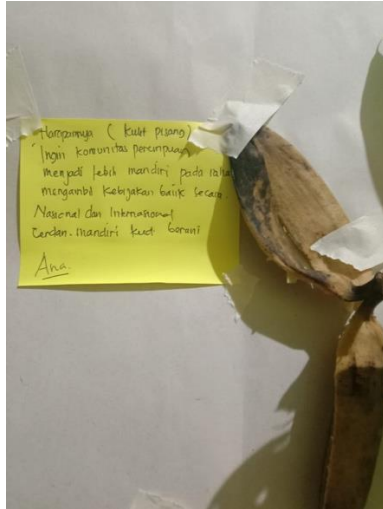 Harapannya (kulit pisang)
Ingin komunitas perempuan
menjadi lebih mandiri pada
mengambil kebijakan baik secara
Nasional dan Internasional
Cerdan. mandiri kuat berani
Ana.